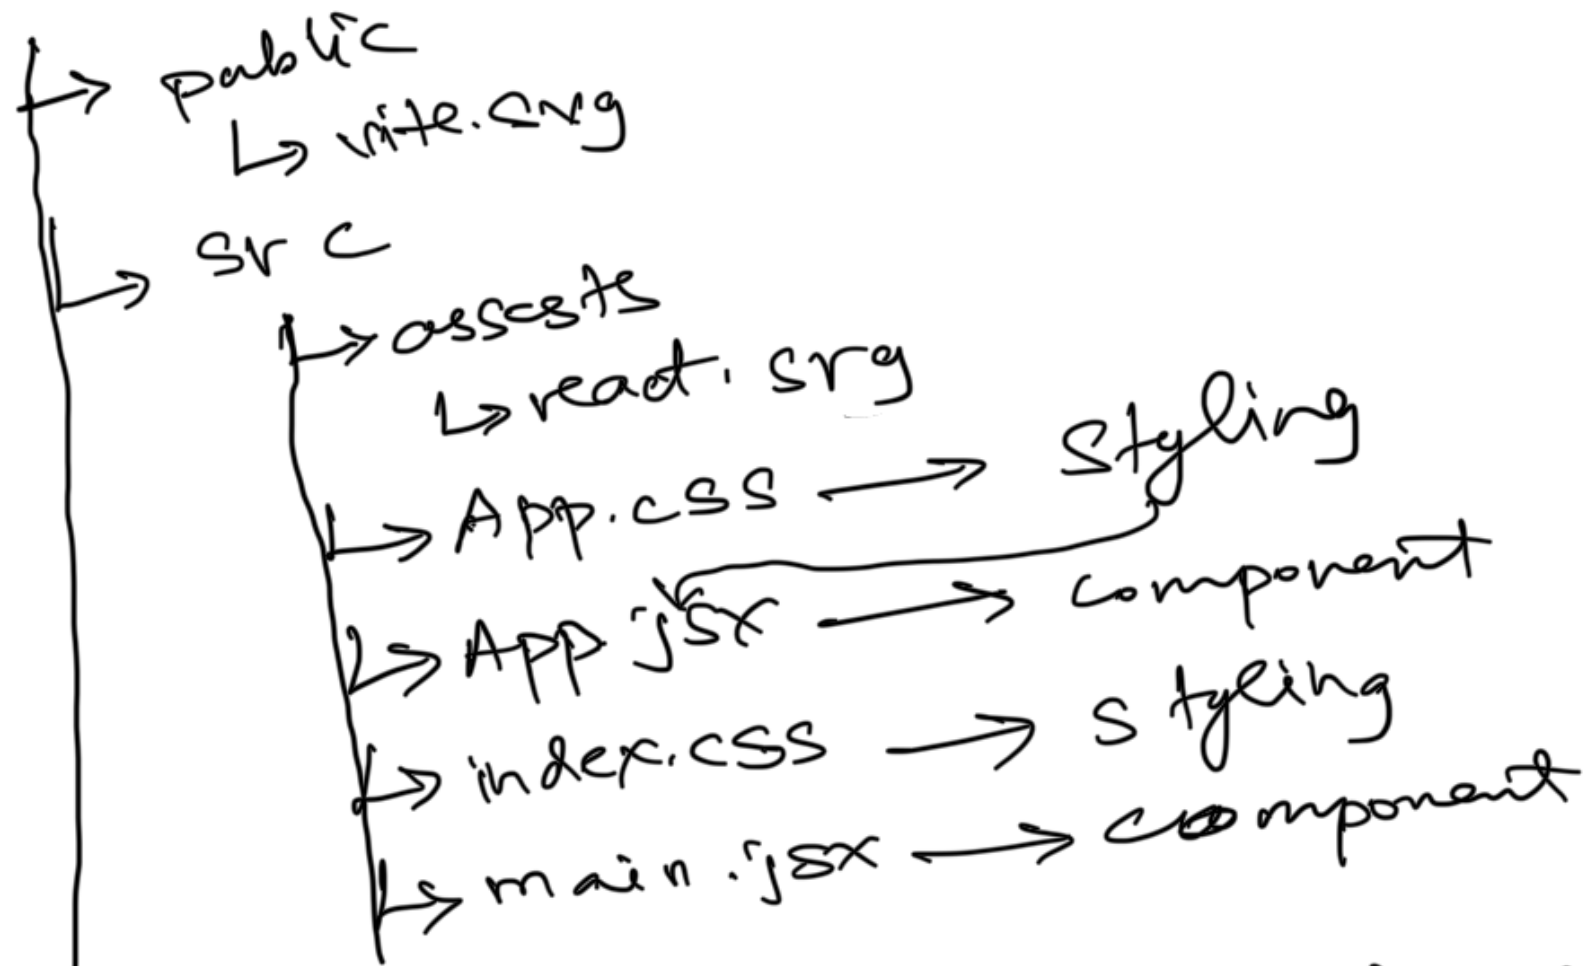 public
vite.svg
src
assests
react.svg
App.css → styling
App jsx → component
index.css → styling
main.jsx → component